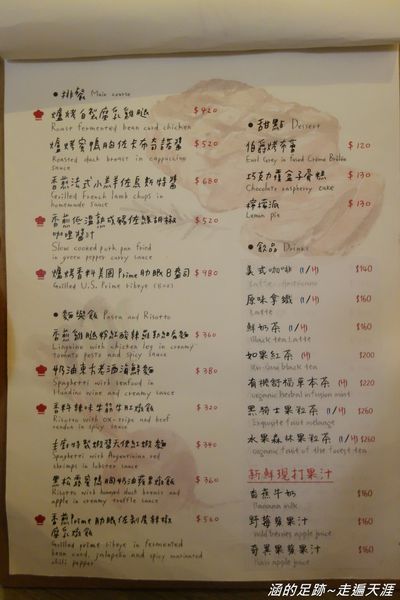 • 排餐 Main course
爐烤自製腐乳雞腿 $420
Roast fermented bean curd chicken
爐烤蜜鴨胸佐卡布奇諾醬 $520
Roasted duck breast in cappuccino
sauce
香煎法式小羔羊佐烏斯特醬 $680
Grilled French lamb chops in
homemade sauce
香煎低溫熟成豬佐綠胡椒 $520
咖哩醬汁
Slow cooked pork pan fried
in green pepper curry sauce
爐烤香料美國Prime肋眼日 $980
Grilled U.S. Prime ribeye
• 麵與飯 Pasta and Risotto
香煎雞腿粉紅酸辣 $360
Linguine with chicken leg in creamy
tomato pesto and spicy sauce
奶油東大老酒海鮮麵 $380
Spaghetti with seafood in
Mandino wine and creamy sauce
香料辣味牛筋牛肚燉飯 $320
Risotto with ox-tripe and beef
tendon in spicy sauce
主廚特製蝦醬天使紅蝦麵 $340
Spaghetti with Argentinian red
shrimps in lobster sauce
黑松露蜜鴨胸奶油蘋果燉飯 $360
Risotto with smoked duck breast and
apple in creamy truffle sauce
香煎Prime肋眼佐剝皮辣椒 $560
腐乳燉飯
Grilled prime ribeye in fermented
bean curd, jalapeño and spicy marinated
chili pepper
• 甜點 Dessert
伯爵烤布蕾 $120
Earl Grey infused Crème Brûlée
巧克力覆盆子蛋糕 $130
Chocolate raspberry cake
檸檬派 $130
Lemon pie
• 飲品 Drinks
美式咖啡 (I/H) $140
原味拿鐵 (I/H) $160
Latte
鮮奶茶 (I/H) $160
Black tea Latte
如果紅茶 (H) $200
black tea
有機舒福草本茶 (H) $220
organic herbal infusion mint
黑騎士果粒茶 (I/H) $260
Exquisite fruit melange
水果森林果粒茶 (I/H) $260
organic fruit of the forest tea
新鮮現打果汁
香蕉牛奶 $160
Banana milk
野莓蘋果汁 $160
Wild berries apple juice
奇異果蘋果汁 $160
Kiwi apple juice
涵的足跡~走遍天涯